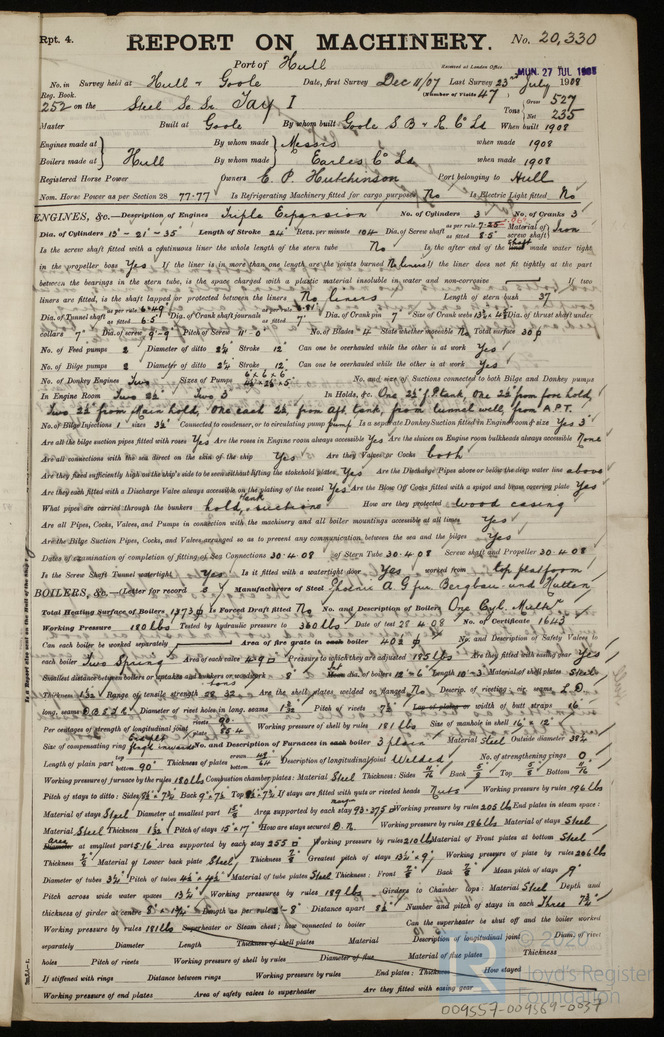 Rpt. 4.
REPORT ON MACHINERY. No. 20,330
Port of Hull
Received at London Office MON. 27 JUL 1908
No. in Survey held at Hull & Goole Date, first Survey Dec 11/07 Last Survey 23rd July 1908
Reg. Book. (Number of Visits 47)
252 on the Steel Sc Sr Tay I Tons Gross 527 Net 235
Master Built at Goole By whom built Goole S B & R. Co Ld When built 1908
Engines made at Hull By whom made Messrs when made 1908
Boilers made at By whom made Earles Co Ld when made 1908
Registered Horse Power Owners E. P. Hutchinson Port belonging to Hull
Nom. Horse Power as per Section 28 77.77 Is Refrigerating Machinery fitted for cargo purposes No Is Electric Light fitted No
ENGINES, &c.—Description of Engines Triple Expansion No. of Cylinders 3 No. of Cranks 3
Dia. of Cylinders 13"-21"-35" Length of Stroke 24" Revs. per minute 104 Dia. of Screw shaft as per rule 7.25 as fitted 8.5" Material of screw shaft Iron
Is the screw shaft fitted with a continuous liner the whole length of the stern tube No Is the after end of the shaft made water tight
in the propeller boss Yes If the liner is in more than one length are the joints burned No liners If the liner does not fit tightly at the part
between the bearings in the stern tube, is the space charged with a plastic material insoluble in water and non-corrosive If two
liners are fitted, is the shaft lapped or protected between the liners No liners Length of stern bush 37
Dia. of Tunnel shaft as per rule 6.49 as fitted 6.5" Dia. of Crank shaft journals as per rule as fitted 7" Dia. of Crank pin 7" Size of Crank webs Dia. of thrust shaft under
collars 7" Dia. of screw 9-9 Pitch of Screw 11-0 No. of Blades 4 State whether moveable No Total surface 30
No. of Feed pumps 2 Diameter of ditto 2¼" Stroke 12" Can one be overhauled while the other is at work Yes
No. of Bilge pumps 2 Diameter of ditto 2¼" Stroke 12" Can one be overhauled while the other is at work Yes
No. of Donkey Engines Two Sizes of Pumps 6 x 6 x 6 No. and size of Suctions connected to both Bilge and Donkey pumps
In Engine Room Two 2½ Two 3" In Holds, &c. One 2½" F.P. tank, One 2½ from fore hold,
Two 2½ from Main hold, One each 2½, from Aft. tank, from tunnel well, from A.P.T.
No. of Bilge Injections 1 sizes 3½" Connected to condenser, or to circulating pump pump Is a separate Donkey Suction fitted in Engine room & size Yes 3"
Are all the bilge suction pipes fitted with roses Yes Are the roses in Engine room always accessible Yes Are the sluices on Engine room bulkheads always accessible None
Are all connections with the sea direct on the skin of the ship Yes Are they Valves or Cocks both
Are they fixed sufficiently high on the ship's side to be seen without lifting the stokehold plates Yes Are the Discharge Pipes above or below the deep water line above
Are they each fitted with a Discharge Valve always accessible on the plating of the vessel Yes Are the Blow Off Cocks fitted with a spigot and brass covering plate Yes
What pipes are carried through the bunkers hold & tank suctions How are they protected wood casing
Are all Pipes, Cocks, Valves, and Pumps in connection with the machinery and all boiler mountings accessible at all times Yes
Are the Bilge Suction Pipes, Cocks, and Valves arranged so as to prevent any communication between the sea and the bilges Yes
Dates of examination of completion of fitting of Sea Connections 30.4.08 of Stern Tube 30.4.08 Screw shaft and Propeller 30.4.08
Is the Screw Shaft Tunnel watertight Yes Is it fitted with a watertight door Yes worked from top platform
BOILERS, &c.—(Letter for record S) Manufacturers of Steel Phoenix A G fur Bergbau und Hutten
Total Heating Surface of Boilers 1373 Is Forced Draft fitted No No. and Description of Boilers One Cyl. Mult
Working Pressure 180 lbs Tested by hydraulic pressure to 360 lbs Date of test 28.4.08 No. of Certificate 1643
Can each boiler be worked separately Area of fire grate in each boiler 40 No. and Description of Safety Valves to
each boiler Two Spring Area of each valve 4.9 Pressure to which they are adjusted 185 lbs Are they fitted with easing gear Yes
Smallest distance between boilers or uptakes and bunkers or woodwork 8" dia. of boilers 12-6 Length 10-3 Material of shell plates Steel
Thickness 1 3/32 Range of tensile strength 28.32 tons Are the shell plates welded or flanged No Descrip. of riveting: cir. seams L.D.
long. seams D.B.S.T.R. Diameter of rivet holes in long. seams 1 3/32 Pitch of rivets 7½ Lap of plates or width of butt straps 16
Per centages of strength of longitudinal joint rivets 90 plate 85.4 Working pressure of shell by rules 181 lbs Size of manhole in shell 16" x 12"
Size of compensating ring flanged inwards No. and Description of Furnaces in each boiler 3 plain Material Steel Outside diameter 38¼
Length of plain part top bottom 90" Thickness of plates crown bottom Description of longitudinal joint Welded No. of strengthening rings 0
Working pressure of furnace by the rules 180 lbs Combustion chamber plates: Material Steel Thickness: Sides Back Top Bottom
Pitch of stays to ditto: Sides Back 9"x7½ Top If stays are fitted with nuts or riveted heads Nuts Working pressure by rules 196 lbs
Material of stays Steel Diameter at smallest part Area supported by each stay 93.275 Working pressure by rules 205 lbs End plates in steam space:
Material Steel Thickness 1 3/32 Pitch of stays 15"x17" How are stays secured D.N. Working pressure by rules 186 lbs Material of stays Steel
Area at smallest part 5.16 Area supported by each stay 255 Working pressure by rules 210 lbs Material of Front plates at bottom Steel
Thickness ⅞" Material of Lower back plate Steel Thickness ⅞" Greatest pitch of stays 13¼ x 9" Working pressure of plate by rules 206 lbs
Diameter of tubes 3¼" Pitch of tubes 4½ x 4½ Material of tube plates Steel Thickness: Front Back Mean pitch of stays 9"
Pitch across wide water spaces 13¼" Working pressures by rules 189 lbs Girders to Chamber tops: Material Steel Depth and
thickness of girder at centre Length as per rule Distance apart 8½" Number and pitch of stays in each Three 7½"
Working pressure by rules 181 lbs Superheater or Steam chest; how connected to boiler Can the superheater be shut off and the boiler worked
separately Diameter Length Thickness of shell plates Material Description of longitudinal joint Diam. of rivet
holes Pitch of rivets Working pressure of shell by rules Diameter of flue Material of flue plates Thickness
If stiffened with rings Distance between rings Working pressure by rules End plates: Thickness How stayed
Working pressure of end plates Area of safety valves to superheater Are they fitted with easing gear
© 2020
Lloyd's Register
Foundation
009557-009569-0037